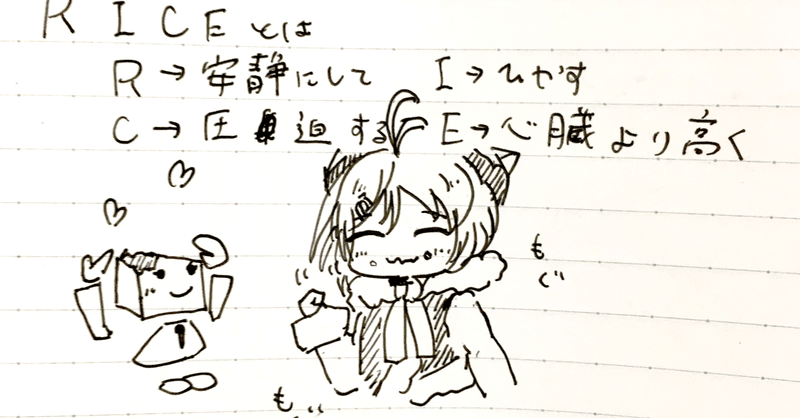 RICEとは
R→安静にして I→ひやす
C→圧迫する E→心臓より高く
もぐ
もぐ